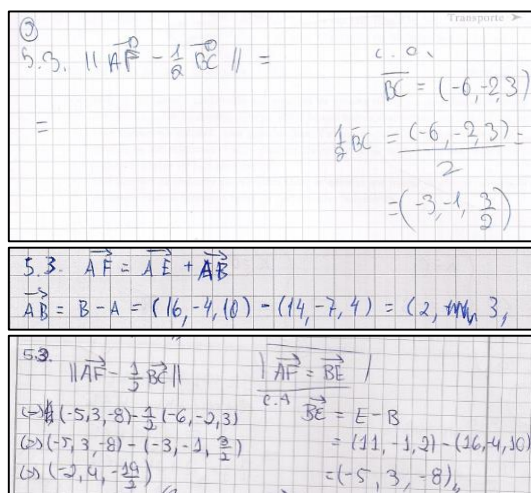 Transporte
5.3. ||AF⃗ - 1/2 BC⃗|| =
=
C.A.
BC⃗ = (-6,-2,3)
1/2 BC⃗ = (-6,-2,3)/2 =
= (-3,-1, 3/2)
5.3. AF⃗ = AE⃗ + AB⃗
AB⃗ = B - A = (16,-4,10) - (14,-7,4) = (2, 3,
5.3.
||AF⃗ - 1/2 BC⃗||
(=) (-5,3,-8) - 1/2 (-6,-2,3)
(=) (-5,3,-8) - (-3,-1, 3/2)
(=) (-2,4,-19/2)
AF⃗ = BE⃗
C.A
BE⃗ = E - B
= (11,-1,2) - (16,-4,10)
= (-5, 3, -8)